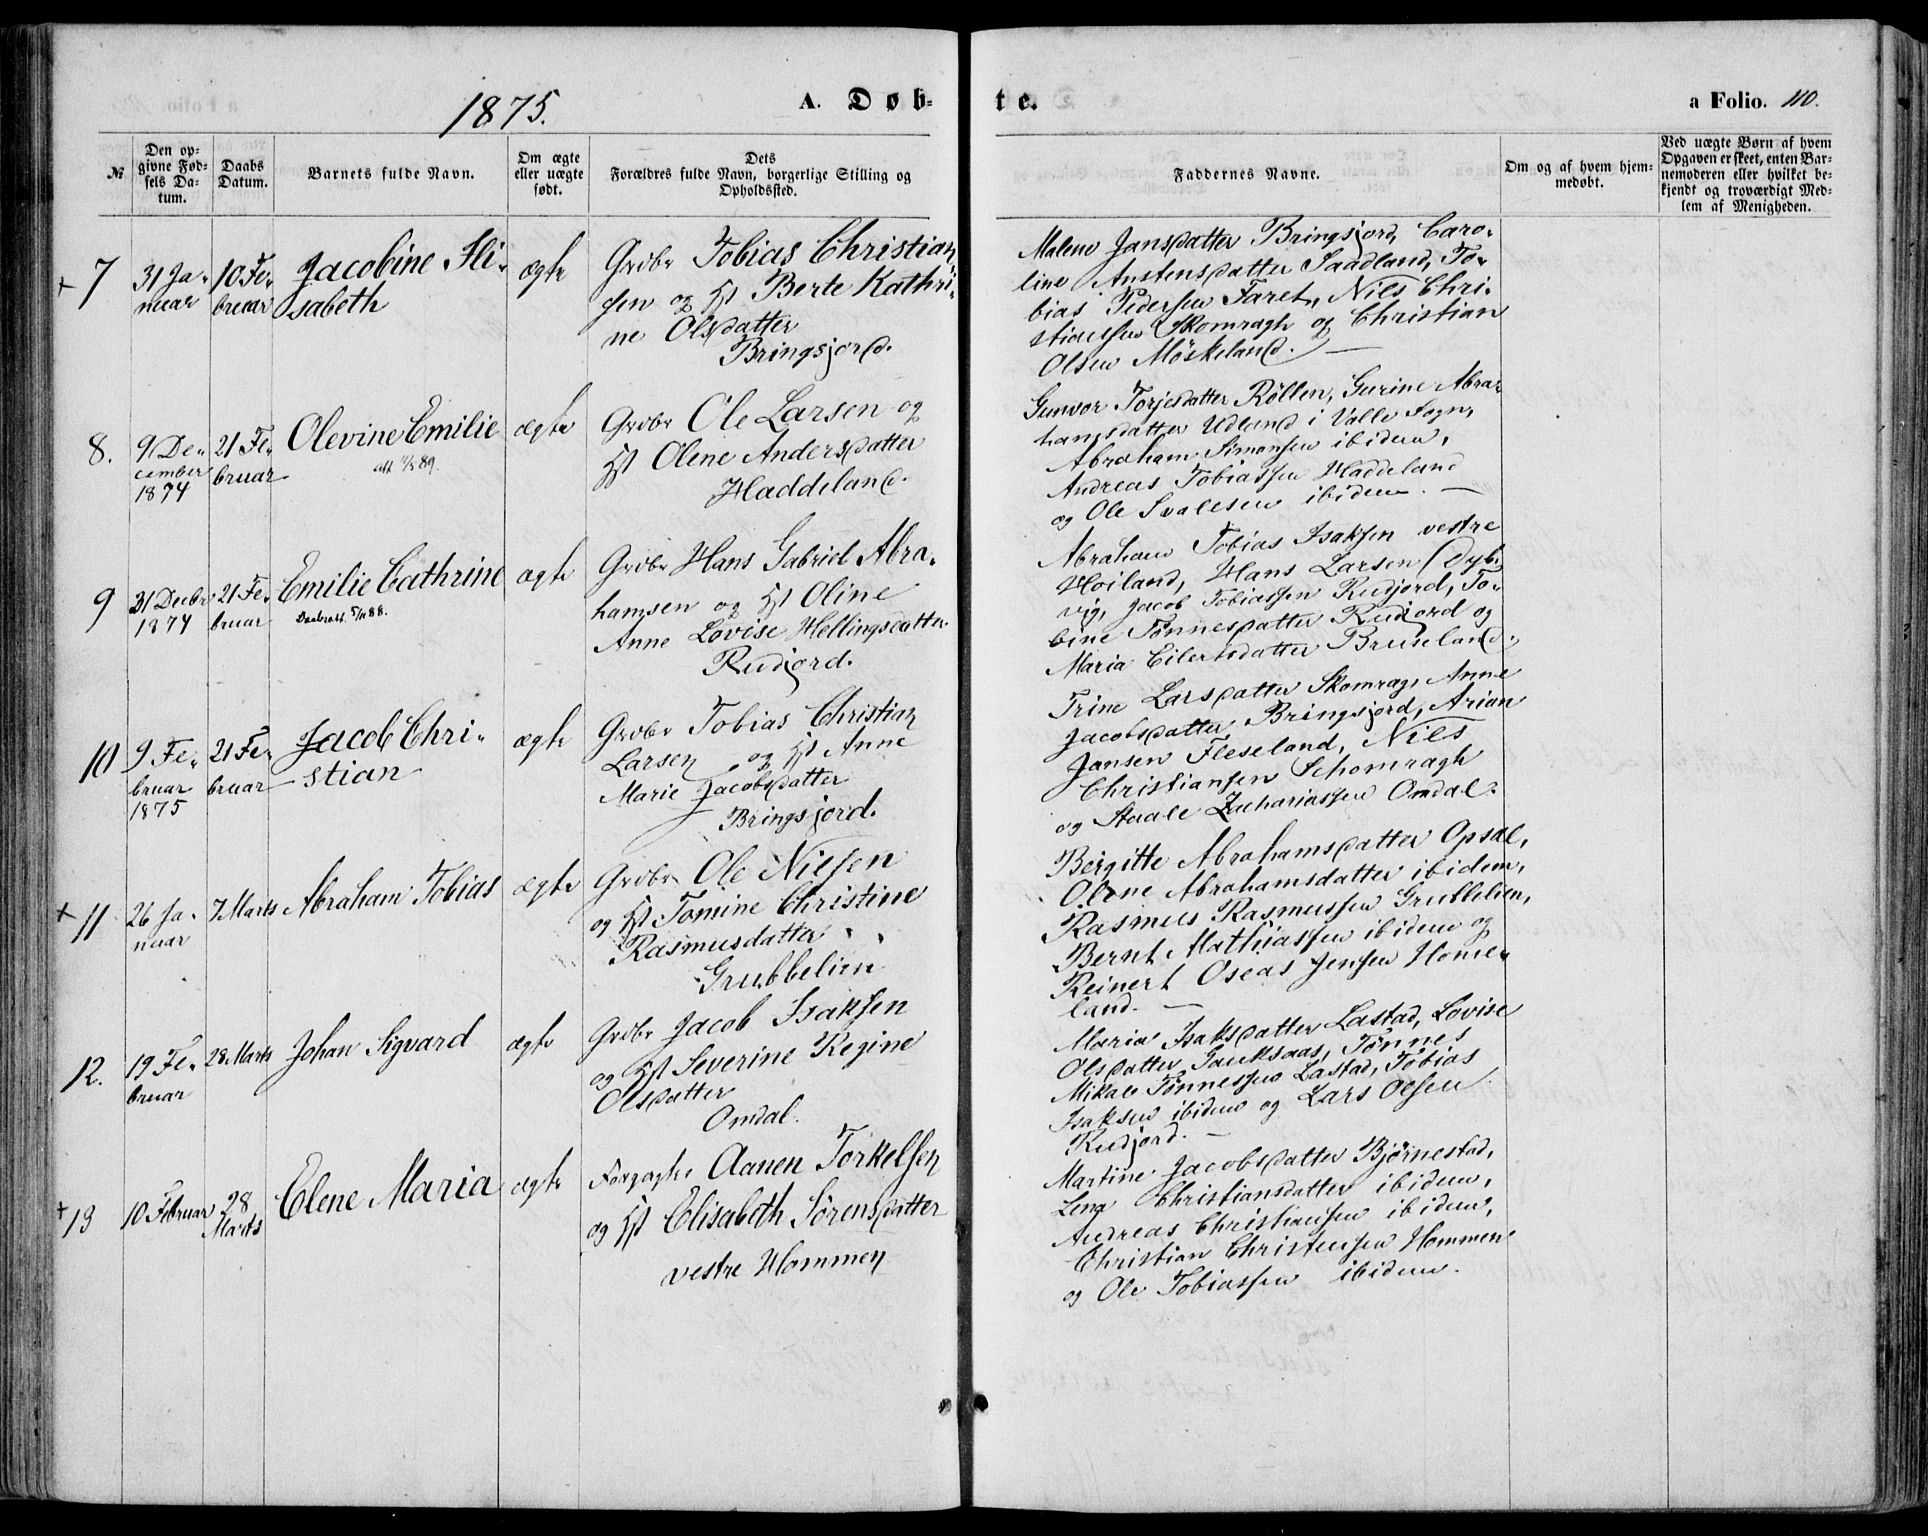 1875.
A. Døb-
te.
a Folio. 110.
№
Den op-
givne Fød-
sels Da-
tum.
Daabs
Datum.
Barnets fulde Navn.
Om ægte
eller uægte
født.
Dets
Forældres fulde Navn, borgerlige Stilling og
Opholdssted.
Faddernes Navne.
Om og af hvem hjem-
medøbt.
Ved uægte Børn af hvem
Opgaven er skeet, enten Bar-
nemoderen eller hvilket be-
kjendt og troværdigt Med-
lem af Menigheden.
+ 7
31 Ja-
nuar
10 Fe-
bruar
Jacobine Eli-
sabeth
ægte
Grdbr Tobias Christian
sen og Hst Berte Kathri-
ne Olsdatter
Bringsjord.
Malene Jansdatter Bringsjord, Caro-
line Anstensdatter Saadland, To-
bias Pedersen Faret, Nils Chri-
stiansen Skomragh og Christian
Olsen Møskeland. —
8.
9 De-
cember
1874
21 Fe-
bruar
Olevine Emilie
ægte
Grdbr Ole Larsen og
Hst Olene Andersdatter
Haddeland.
Gunvor Torjesdatter Røllen, Gurine Abra-
hamsdatter Udland i Valle Sogn,
Abraham Simonsen ibidem,
Andreas Tobiassen Haddeland
og Ole Svalesen ibidem. —
9
31 Decbr
1874
21 Fe-
bruar
Emilie Cathrine
ægte
Grdbr Hans Gabriel Abra-
hamsen og Hst Oline
Anne Lovise Hellingsdatter
Rudjord.
Abraham Tobias Isaksen vestre
Høiland, Hans Larsen Dyb-
vig, Jacob Tobiassen Rudjord, To-
bine Tønnesdatter Rudjord og
Maria Eilertsdatter Bruseland.
10
9 Fe-
bruar
1875
21 Fe-
bruar
Jacob Chri-
stian
ægte
Grdbr Tobias Christian
Larsen og Hst Anne
Marie Jacobsdatter
Bringsjord.
Trine Larsdatter Skomrag, Anne
Jacobsdatter Bringsjord, Arian
Jansen Fleseland, Nils
Christiansen Schomragh
og Staale Zachariassen Omdal.
+ 11
26 Ja-
nuar
7 Marts
Abraham Tobias
ægte
Grdbr Ole Nilsen
og Hst Tomine Christine
Rasmusdatter
Grubbelien
Bergitte Abrahamsdatter Opsal,
Olene Abrahamsdatter ibidem,
Rasmus Rasmussen Grubbelien,
Bernt Mathiassen ibidem og
Reinert Oseas Jensen Home-
land. —
12.
19 Fe-
bruar
28 Marts
Johan Sigvard
ægte
Grdbr Jacob Isaksen
og Hst Severine Regine
Olsdatter
Omdal.
Maria Isaksdatter Lastad, Lovise
Olsdatter Gauksaas, Tønnes
Mikal Tønnessen Lastad, Tobias
Isaksen ibidem og Lars Olsen
Rudjord. —
+ 13
10 Februar
28
Marts
Elene Maria
ægte
Aanen Torkelsen
og Hst Elisabeth Sørensdatter
vestre Hommen
Martine Jacobsdatter Bjørnestad,
Lena Christiansdatter ibidem,
Andreas Christiansen ibidem,
Christian Christensen Hommen
og Ole Tobiassen ibidem.